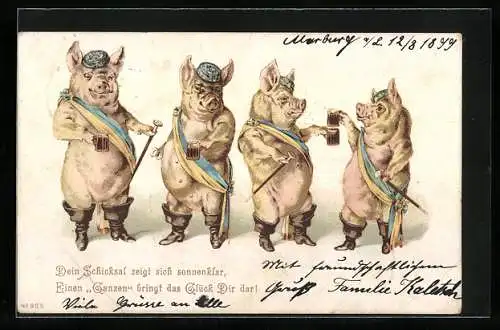 Marburg a/L. 12/8 1899
Dein Schicksal zeigt sich sonnenklar,
Einen „Ganzen“ bringt das Glück Dir dar!
Mit freundschaftlichem
Gruß Familie
Viele Grüsse an Alle
No 905